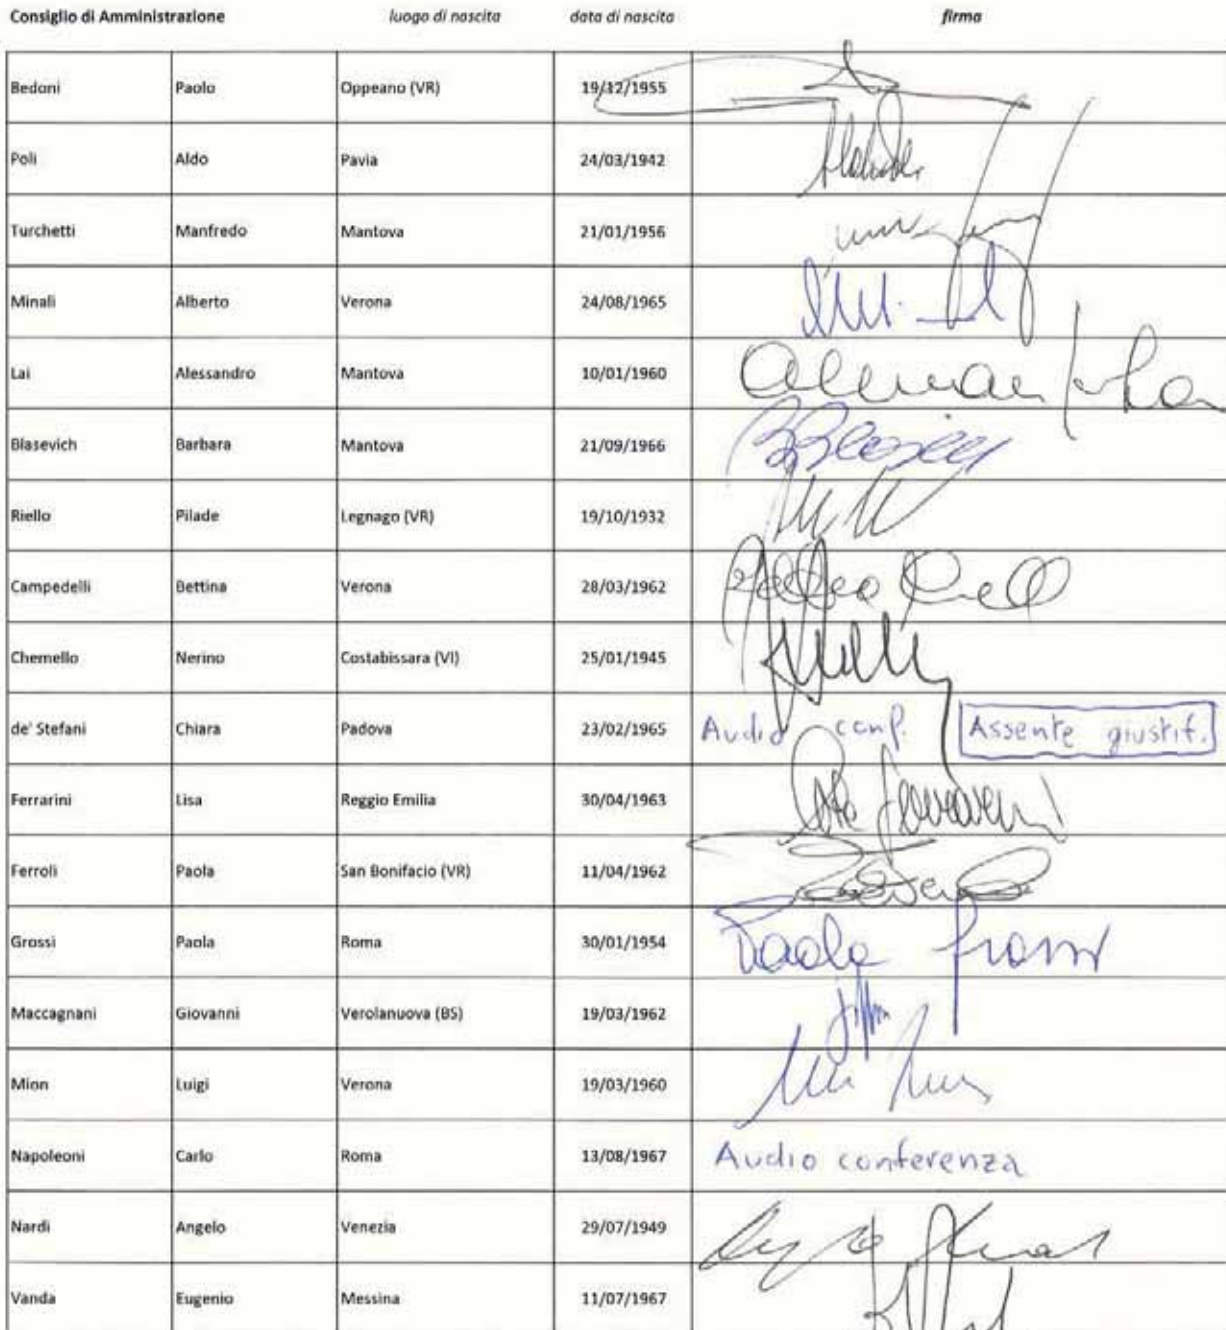 Consiglio di Amministrazione luogo di nascita data di nascita firma
Bedoni Paolo Oppeano (VR) 19/12/1955
Poli Aldo Pavia 24/03/1942
Turchetti Manfredo Mantova 21/01/1956
Minali Alberto Verona 24/08/1965
Lai Alessandro Mantova 10/01/1960
Blasevich Barbara Mantova 21/09/1966
Riello Pilade Legnago (VR) 19/10/1932
Campedelli Bettina Verona 28/03/1962
Chemello Nerino Costabissara (VI) 25/01/1945
de' Stefani Chiara Padova 23/02/1965 Audio conf. Assente giustif.
Ferrarini Lisa Reggio Emilia 30/04/1963
Ferroli Paola San Bonifacio (VR) 11/04/1962
Grossi Paola Roma 30/01/1954 Paola Grossi
Maccagnani Giovanni Verolanuova (BS) 19/03/1962
Mion Luigi Verona 19/03/1960
Napoleoni Carlo Roma 13/08/1967 Audio conferenza
Nardi Angelo Venezia 29/07/1949
Vanda Eugenio Messina 11/07/1967